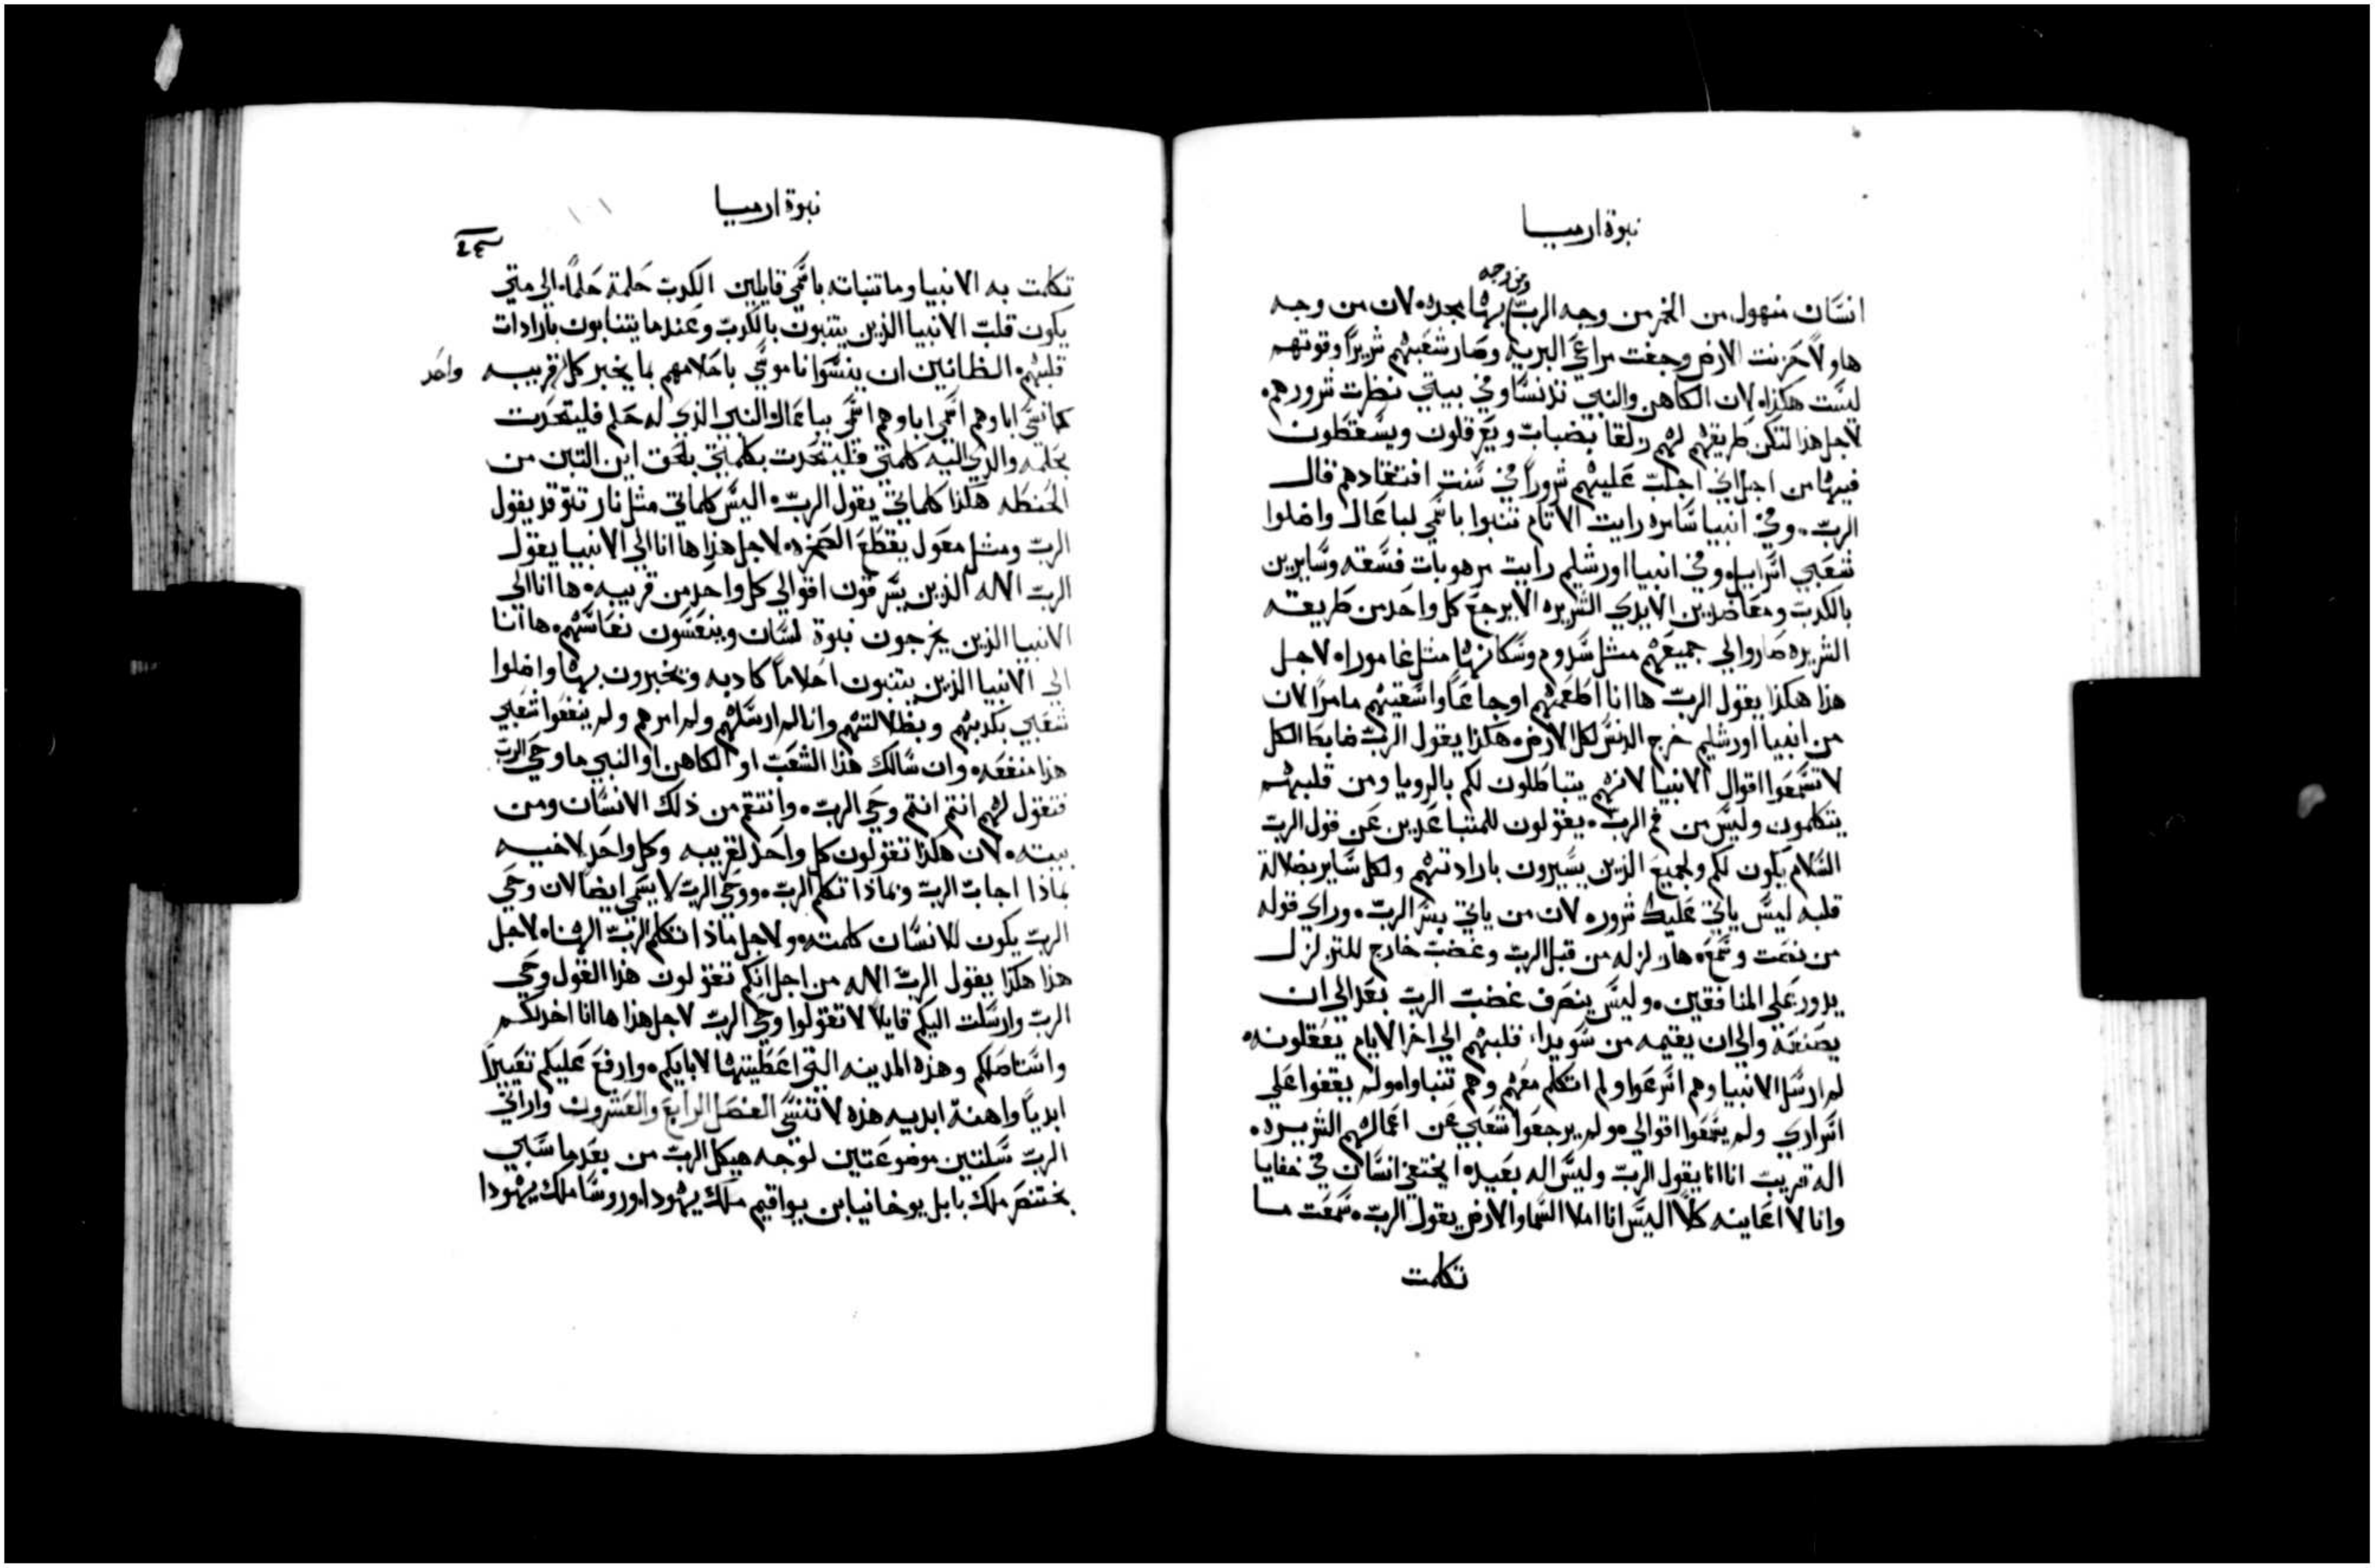 نبوة ارميا
ومن وجه
انسان منهول من الخمر من وجه الرب بهآ مجده لان من وجه
هاولا حزنت الارض وجفت مراعي البرية وصار شعبهم شريراً وقوتهم
ليست هكذا، لان الكاهن والنبي تدنسا وفي بيتي نظرت شرورهم.
لاجل هذا لتكن طريقهم لهم زلقا بضباب ويعرقلون ويسقطون
فيها من اجل اني اجلب عليهم شروراً في سنت افتقادهم قال
الرب. وفي انبيا سامره رايت الاثام تنبوا باسمي لباعال واضلوا
شعبي اسراييل وفي انبيا اورشليم رايت مرهوبات فسقه وسايرين
بالكدب ومعاضدين الايدي الشريره الا يرجع كل واحد من طريقته
الشريره صاروا لي جميعهم مثل سدوم وسكانها مثل غامورا، لاجل
هذا هكذا يقول الرب ها انا اطعمهم اوجاعاً واسقيهم ما مراً لان
من انبيا اورشليم خرج الدنس لكل الارض. هكذا يقول الرب ضابط الكل
لا تسمعوا اقوال الانبيا لانهم يتباطلون لكم بالرويا ومن قلبهم
يتكلمون وليس من فم الرب. يقولون للمتباعدين عن قول الرب
السلام يكون لكم ولجميع الذين يسيرون بارادتهم ولكل ساير بضلالة
قلبه ليس ياتي عليك شرور، لان من ياتي بسر الرب. وراي قوله
من نصت وسمع، ها زلزله من قبل الرب وغضب خارج للتزلزل
يدور على المنافقين. وليس ينصرف غضب الرب بعد الى ان
يصنعه والى ان يقيمه من سويدا، قلبهم الي اخر الايام يعقلونه.
لم ارسل الانبيا وهم اسرعوا ولم اتكلم معهم وهم تنباوا، ولم يقفوا علي
اسراري ولم يسمعوا اقوالي. ولم يرجعوا شعبي عن اعمالهم الشريره.
اله قريب انا انا يقول الرب وليس اله بعيد، ايختفي انسان في خفايا
وانا لا اعاينه كلا اليس انا املا السما والارض يقول الرب. سمعت ما
تكلمت
نبوة ارميا
تكلمت به الانبيا وما تنبات باسمي قايلين الكدب حلمت حلماً. الى متي
يكون قلب الانبيا الذين يتنبون بالكدب وعندما يتنابون بارادات
قلبهم. الظانين ان ينسوا ناموسي باحلامهم بما يخبر كل قريبه
واحد
كما نسي اباوهم اسمي بباعال، النبي الذي له حلم فليتحدث
بحلمه والذي اليه كلمتي فليتحدث بكلمتي بالحق اين التبن من
الحنطه هكذا كلماتي يقول الرب. اليس كلماتي مثل نار تتوقد يقول
الرب ومثل معول يقطع الصخره. لاجل هذا ها انا الي الانبيا يقول
الرب الاله الذين يسرقون اقوالي كل واحد من قريبه. ها انا الي
الانبيا الذين يخرجون نبوة لسان وينعسون نعاستهم. ها انا
الي الانبيا الذين يتنبون احلاماً كادبه ويخبرون بها واضلوا
شعبي بكدبهم وبضلالتهم وانا لم ارسلهم ولم امرهم ولم ينفعوا شعبي
هذا منفعه. وان سالك هذا الشعب او الكاهن او النبي ما وحي الرب
فتقول لهم انتم انتم وحي الرب. وانتقم من ذلك الانسان ومن
بيته. لان هكذا تقولون كل واحد لقريبه وكل واحد لاخيه
بماذا اجاب الرب وبماذا تكلم الرب. ووحي الرب لا يسمي ايضا لان وحي
الرب يكون للانسان كلمته. ولاجل ماذا تكلم الرب الهنا، لاجل
هذا هكذا يقول الرب الاله من اجل انكم تقولون هذا القول وحي
الرب وارسلت اليكم قايلا لا تقولوا وحي الرب لاجل هذا ها انا اخذكم
واستاصلكم وهذه المدينه التي اعطيتها لابايكم. وارفع عليكم تعييراً
ابدياً واهنة ابديه هذه لا تنسي الفصل الرابع والعشرون واراني
الرب سلتين موضوعتين لوجه هيكل الرب من بعد ما سبي
بختنصر ملك بابل يوخانيا بن يواقيم ملك يهودا، وروسا ملك يهودا